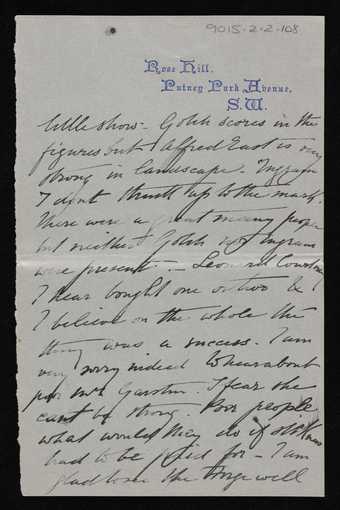 9015-2-2-108
Rose Hill,
Putney Park Avenue,
S.W.
little show - Gotch scores in the
figures but Alfred East is very
strong in landscape - Ingram
I dont think up to the mark.
There were a great many people
but neither Gotch nor Ingram
were present - Leonard Courtney
I hear bought one or two &
I believe on the whole the
thing was a success. I am
very sorry indeed to hear about
poor Mrs Garstin. I fear she
cant be strong. Poor people
what would they do if
had to be for - I am
glad to see the Forge well